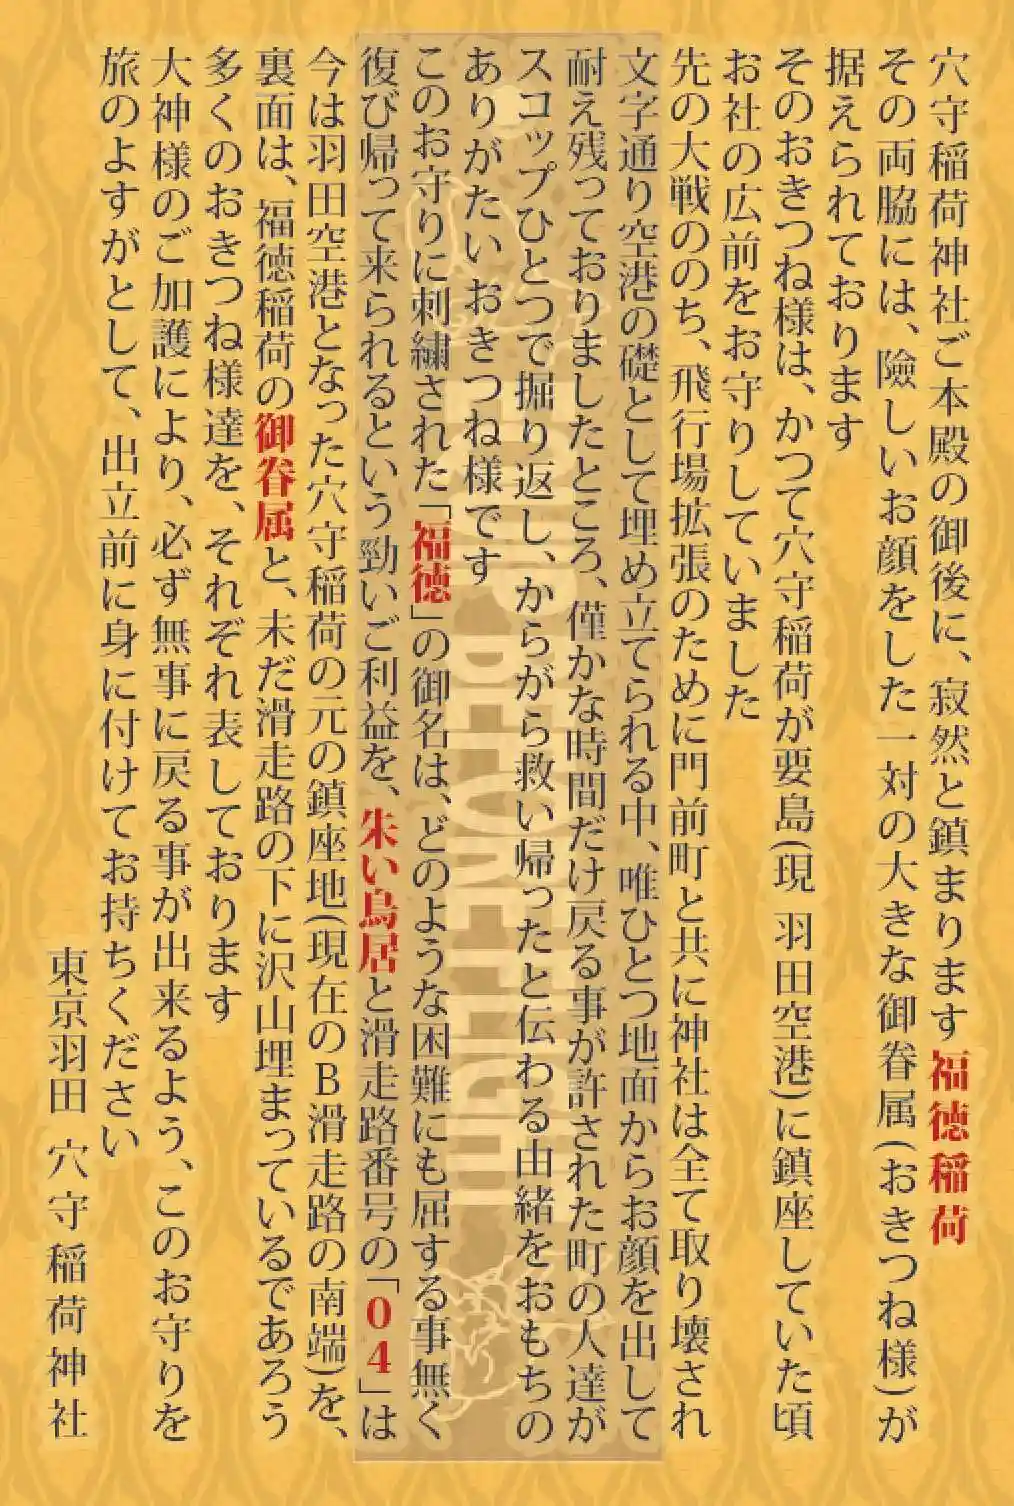 穴守稲荷神社ご本殿の御後に、寂然と鎮まります福徳稲荷
その両脇には、險しいお顔をした一対の大きな御眷属(おきつね様)が
据えられております
そのおきつね様は、かつて穴守稲荷が要島(現 羽田空港)に鎮座していた頃
お社の広前をお守りしていました
先の大戦ののち、飛行場拡張のために門前町と共に神社は全て取り壊され
文字通り空港の礎として埋め立てられる中、唯ひとつ地面からお顔を出して
耐え残っておりましたところ、僅かな時間だけ戻る事が許された町の人達が
スコップひとつで掘り返し、からがら救い帰ったと伝わる由緒をおもちの
ありがたいおきつね様です
このお守りに刺繍された「福徳」の御名は、どのような困難にも屈する事無く
復び帰って来られるという勁いご利益を、朱い鳥居と滑走路番号の「04」は
今は羽田空港となった穴守稲荷の元の鎮座地(現在のB滑走路の南端)を、
裏面は、福徳稲荷の御眷属と、未だ滑走路の下に沢山埋まっているであろう
多くのおきつね様達を、それぞれ表しております
大神様のご加護により、必ず無事に戻る事が出来るよう、このお守りを
旅のよすがとして、出立前に身に付けてお持ちください
東京羽田 穴守稲荷神社